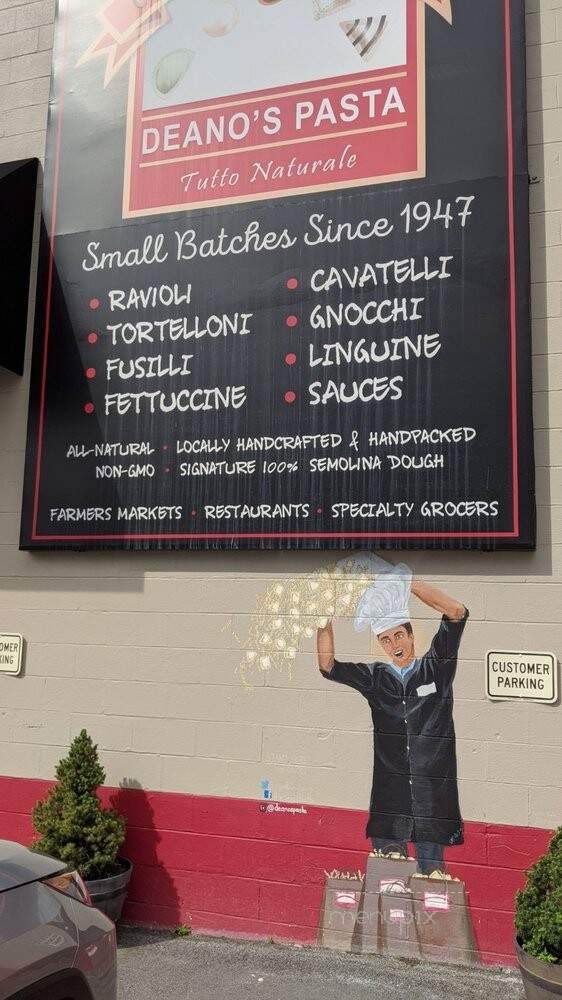 DEANO'S PASTA
Tutto Naturale
Small Batches Since 1947
• RAVIOLI
• TORTELLONI
• FUSILLI
• FETTUCCINE
• CAVATELLI
• GNOCCHI
• LINGUINE
• SAUCES
ALL-NATURAL • LOCALLY HANDCRAFTED & HANDPACKED
NON-GMO • SIGNATURE 100% SEMOLINA DOUGH
FARMERS MARKETS • RESTAURANTS • SPECIALTY GROCERS
OMER
KING
CUSTOMER
PARKING
@deanospasta
menupix